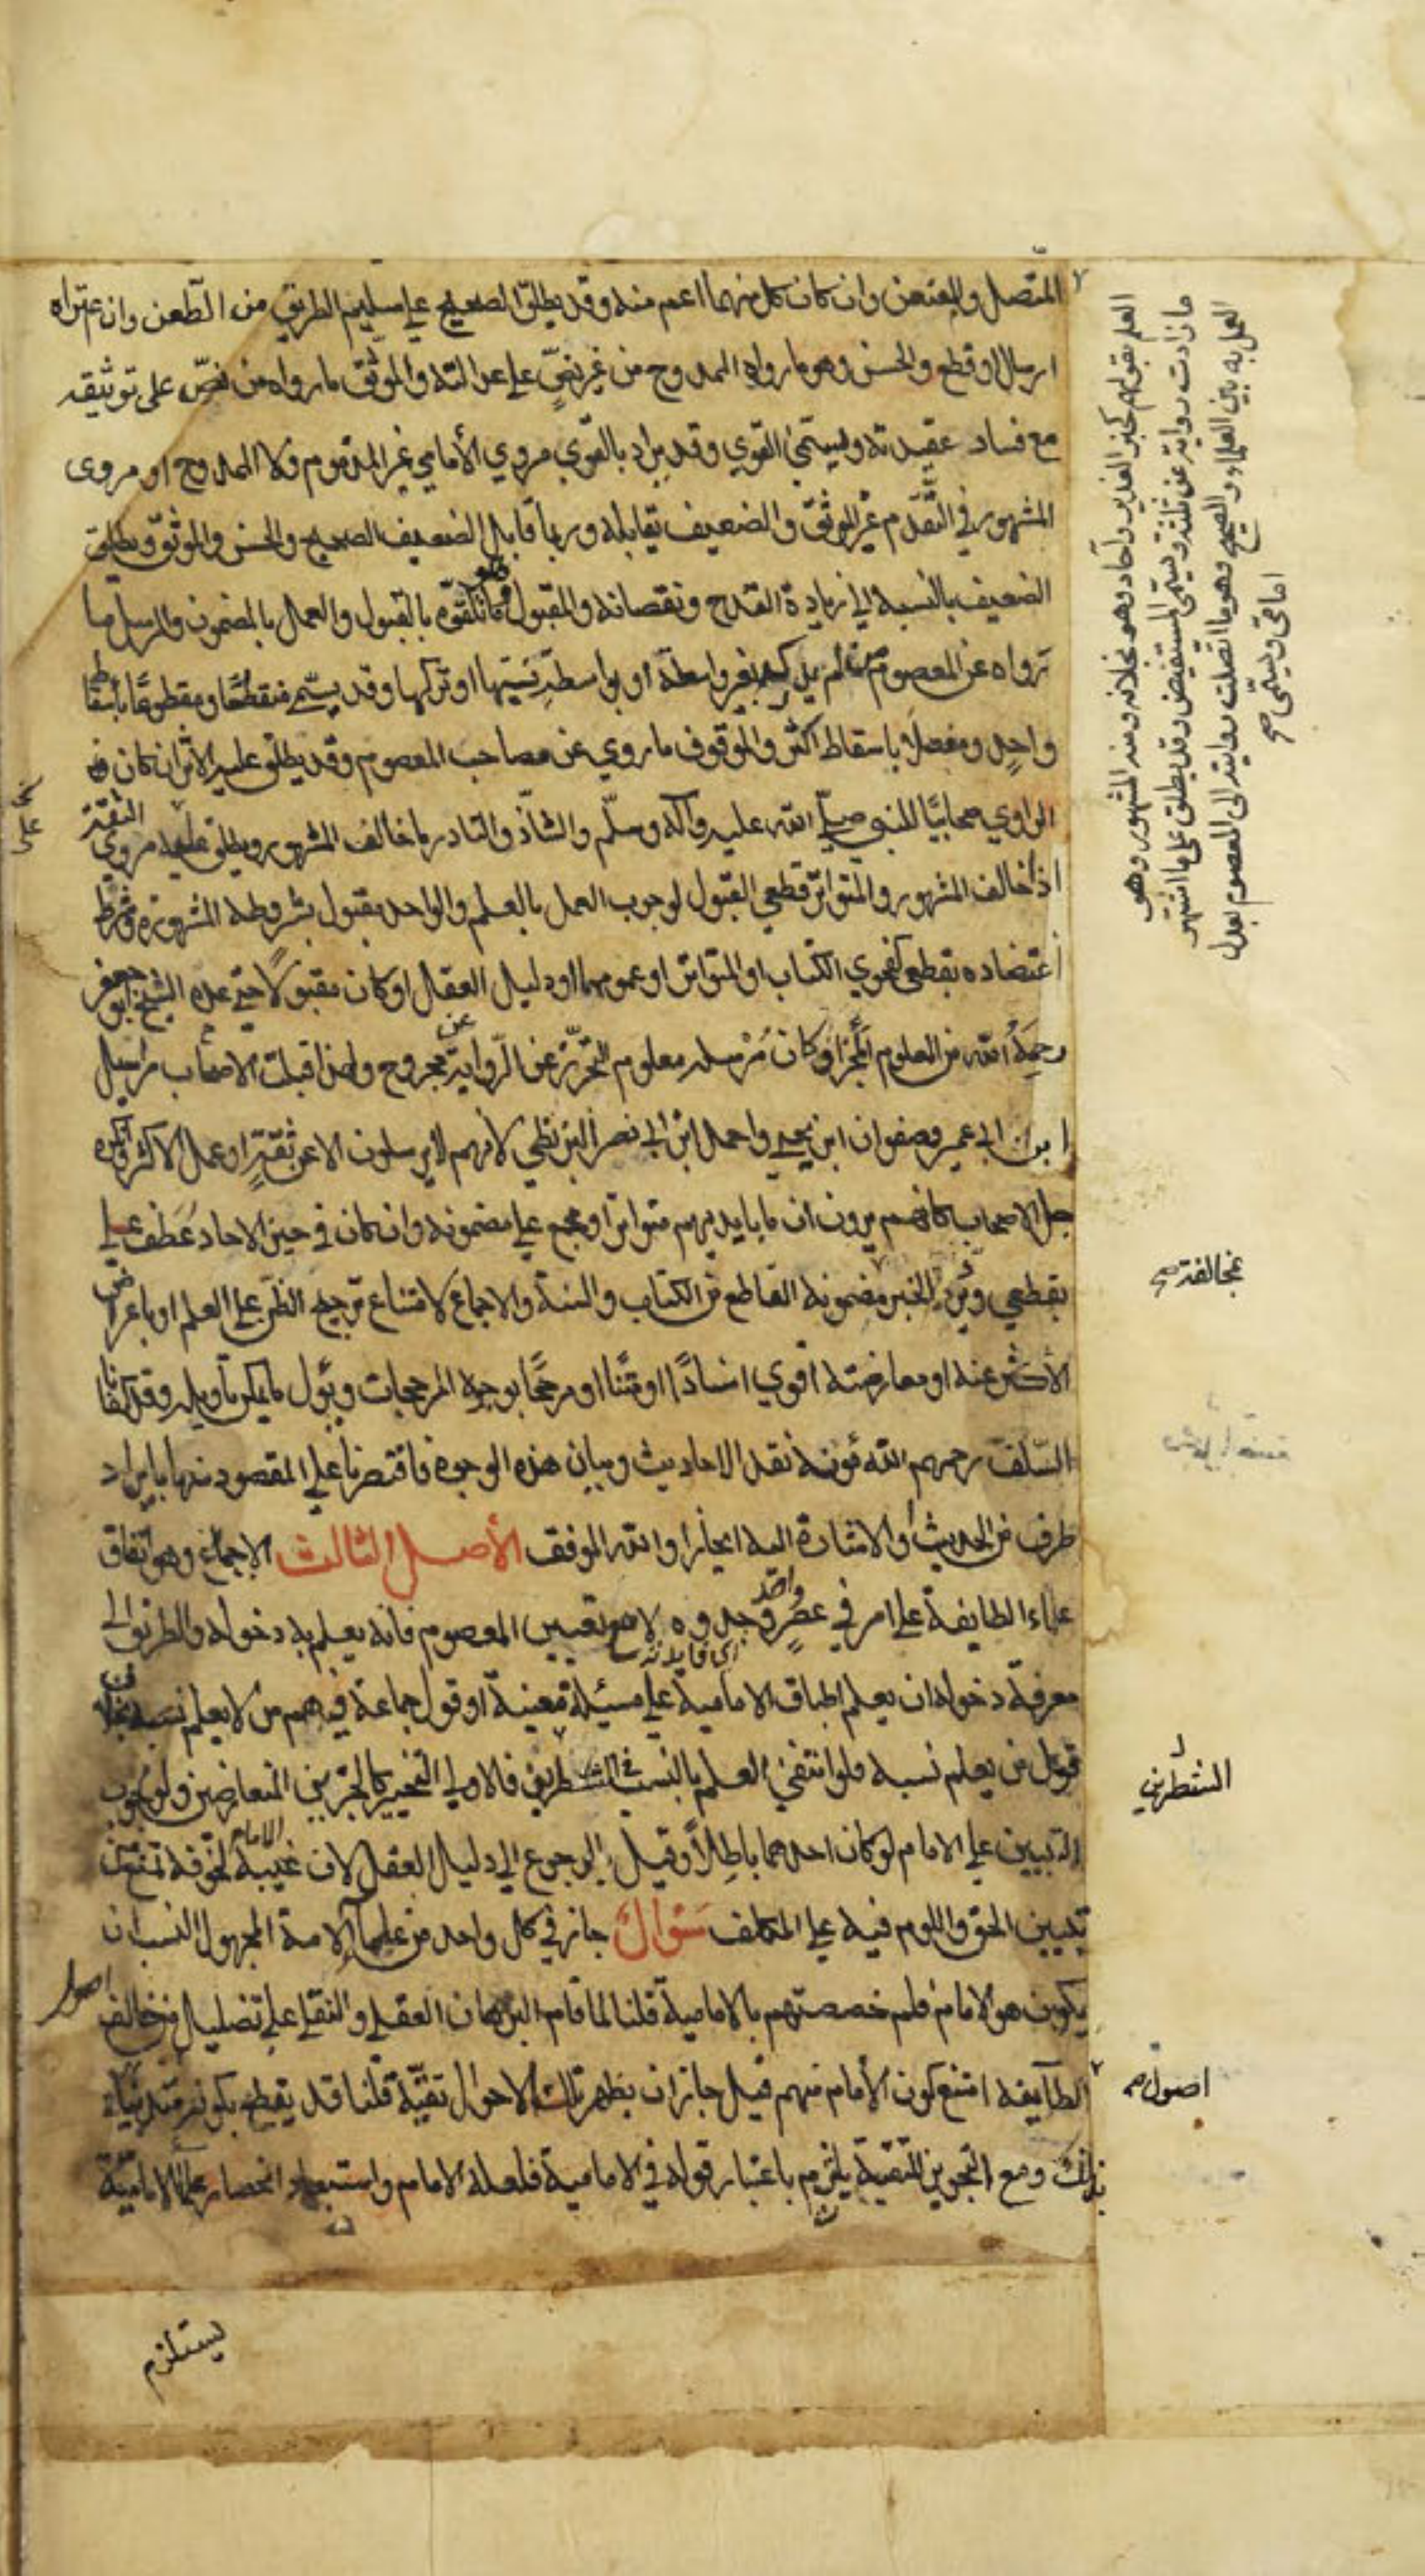 المتصل والمعنعن وان كان كل منهما اعم منه وقد يطلق الصحيح على سليم الطريق من الطعن وان اعتراه
ارسال او قطع والحسن وهو ما رواه الممدوح من غير نص على عدالته والموثق ما رواه من نص على توثيقه
مع فساد عقيدته ويسمى القوي وقد يراد بالقوي مروي الأمامي غير المذموم ولا الممدوح او مروى
المشهور في التقدم غير الموثق والضعيف يقابله وربما قابل الضعيف الصحيح والحسن والموثق ويطلق
الضعيف بالنسبة الى زيادة القدح ونقصانه والمقبول هو ما تلقوه بالقبول والعمل بالمضمون والمرسل ما
رواه عن المعصوم من لم يدركه بغير واسطة او بواسطة نسيها او تركها وقد يسمى منقطعا ومقطوعا باسقاط
واحد ومعضلا باسقاط اكثر والموقوف ما روي عن مصاحب المعصوم وقد يطلق عليه الاثر ان كان
الراوي صحابيا للنبي صلى الله عليه وآله وسلم والشاذ والنادر ما خالف المشهور ويطلق على مروي الثقة
اذا خالف المشهور والمتواتر قطعي القبول لوجوب العمل بالعلم والواحد مقبول بشروطه المشهورة وشرط
اعتضاده بقطعي كفحوي الكتاب او المتواتر او عمومهما او دليل العقل او كان مقبولا حتى عده الشيخ ابو جعفر
رحمه الله من المعلوم المخبر او كان مرسله معلوم التحرز عن الرواية عن مجروح ولهذا قبلت الاصحاب مراسيل
ابن ابي عمير وصفوان ابن يحيى واحمد ابن ابي نصر البزنطي لانهم لا يرسلون الا عن ثقة او عمل الاكثر
جل الاصحاب كانهم يرون ان ما بايديهم متواترا او مجمع على مضمونه وان كان في حيز الاحاد عطف على
بقطعي ويرد الخبر مضمونه القاطع من الكتاب والسنة والاجماع لامتناع ترجيح الظن على العلم او باعراض
الأكثر عنه او معارضته اقوى اسنادا او متنا او مرجحا بوجوه المرجحات ويؤل ما يمكن تاويله وقد كفانا
السلف رحمهم الله مؤنة نقد الاحاديث وبيان هذه الوجوه فاقتصرنا على المقصود منها بايراد
طرف من الحديث او الاشارة اليه ايجازا والله الموفق الأصل الثالث الاجماع وهو اتفاق
علماء الطايفة على امر في عصر واحد وجدوه لا مع تعيين المعصوم فانه يعلم به دخوله والطريق الى
اي فايدته
معرفة دخوله ان يعلم اطباق الامامية على مسئلة معينة او قول جماعة فيهم من لا يعلم نسبه بخلاف
قول من يعلم نسبه فلو انتفى العلم بالنسب في الشطرين فالاولى التخيير كالخبرين المتعارضين ولوجوب
التبيين على الامام لو كان احدهما باطلا وقيل بالرجوع الى دليل العقل لان غيبة الامام لخوفه تمنع من
تبيين الحق واللوم فيه على المكلف سؤال جاز في كل واحد من علماء الامة المجهول النسب ان
يكون هو الامام فلم خصصتهم بالامامية قلنا لما قام البرهان العقلي والنقلي على تضليل من خالف اصول
الطايفة امتنع كون الأمام منهم قيل جاز ان يظهر تلك الاحوال تقية قلنا قد يقطع بكونه متدينا
بذلك ومع التجويز للتقية يلتزم باعتبار قوله في الامامية فلعله الامام واستبعاد انحصار علماء الامامية
يستلزم
العلم بقولهم كخبر الغدير وآحاد وهو بخلافه ومنه المشهور وهو
ما زادت رواته عن ثلثة ويسمى المستفيض وقد يطلق على ما اشتهر
العمل به بين العلماء والصحيح وهو ما اتصلت روايته الى المعصوم بعدل
امامي ويسمى صح
بمخالفته صح
الشطرين
اصول صح